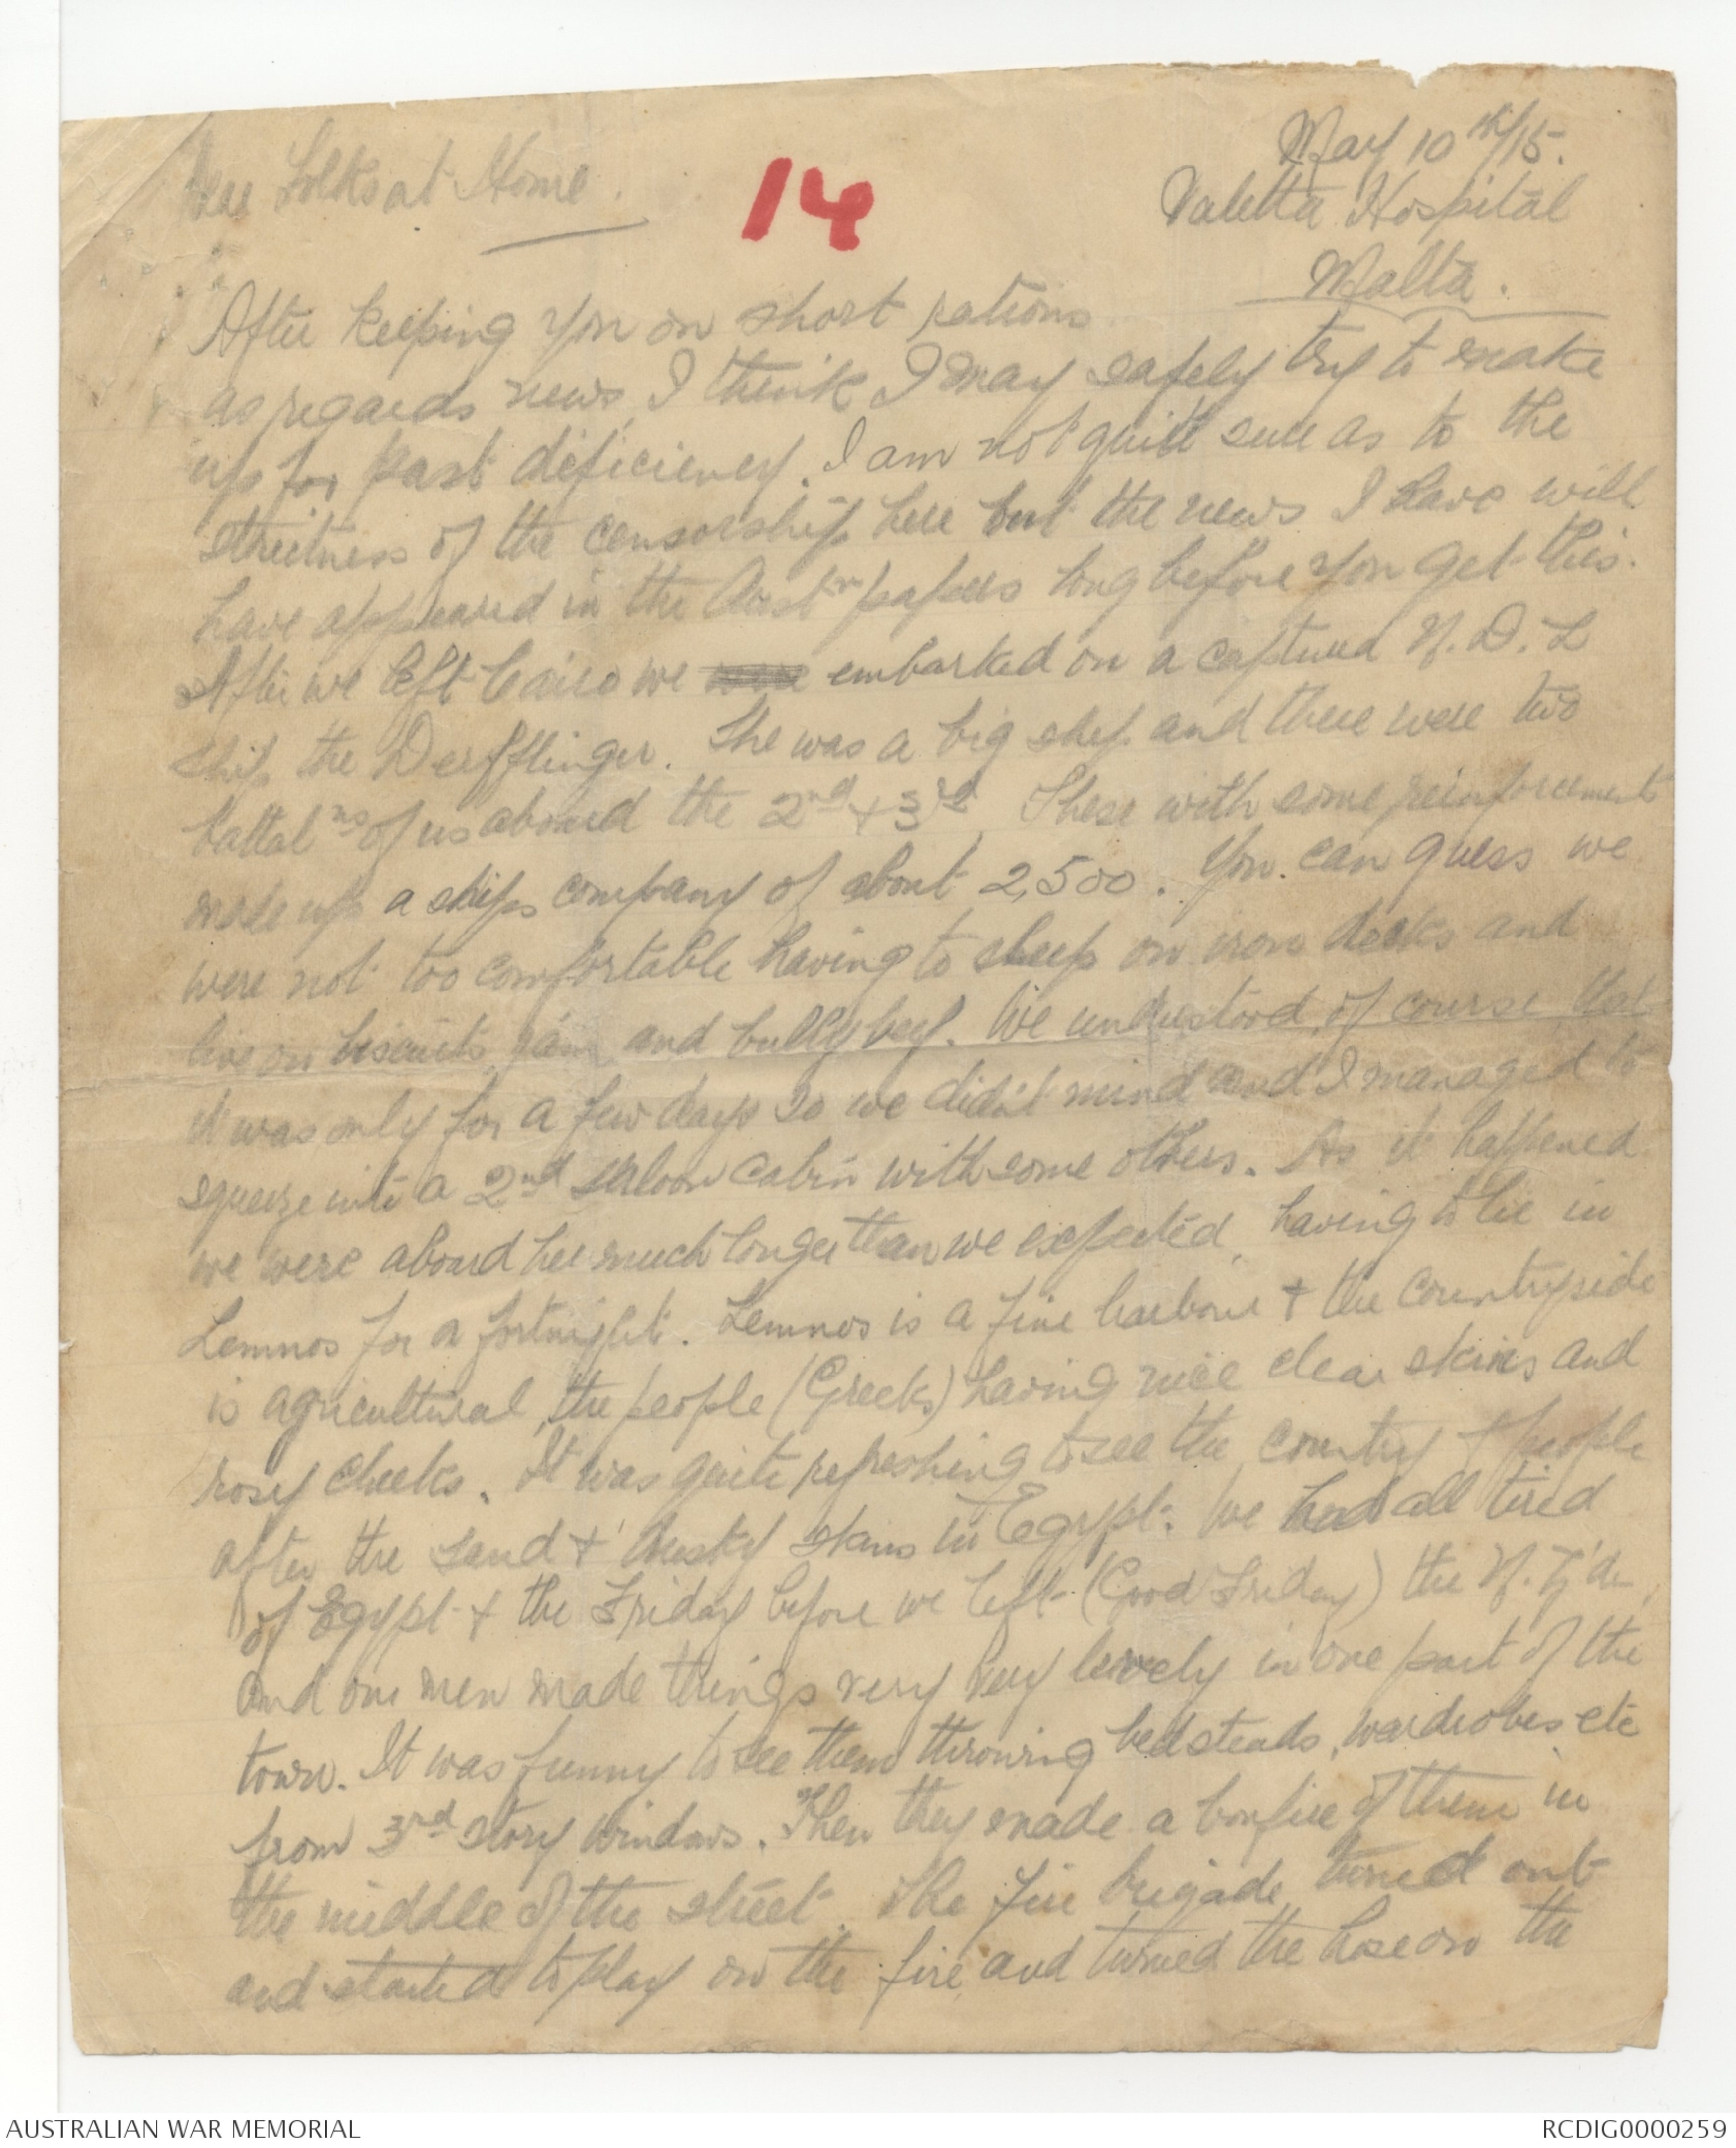 May 10th/15.
Dear Folks at Home.
14
Valetta Hospital
Malta.
After keeping you on short rations
as regards news, I think I may safely try to make
up for past deficiency. I am not quite sure as to the
strictness of the censorship here but the news I have will
have appeared in the Austn papers long before you get this.
After we left Cairo we were embarked on a captured N.D.L
ship the Derfflinger. She was a big ship and there were two
battalns of us aboard the 2nd + 3rd. These with some reinforcements
made up a ships company of about 2,500. You can guess we
were not too comfortable having to sleep on iron decks and
live on biscuits, jam, and bully beef. We understood, of course, that
it was only for a few days so we didn't mind and I managed to
squeeze into a 2nd saloon cabin with some others. As it happened
we were aboard her much longer than we expected, having to lie in
Lemnos for a fortnight. Lemnos is a fine harbour + the countryside
is agricultural, the people (Greeks) having nice clear skins and
rosy cheeks. It was quite refreshing to see the country + people
after the sand + dusky skins in Egypt. We had all tired
of Egypt + the Friday before we left (Good Friday) the N.Z'drs
and our men made things very very lively in one part of the
town. It was funny to see them throwing bedsteads, wardrobes etc
from 3rd story windows. Then they made a bonfire of them in
the middle of the street. The fire brigade turned out
and started to play on the fire and turned the hose on the
AUSTRALIAN WAR MEMORIAL
RCDIG0000259